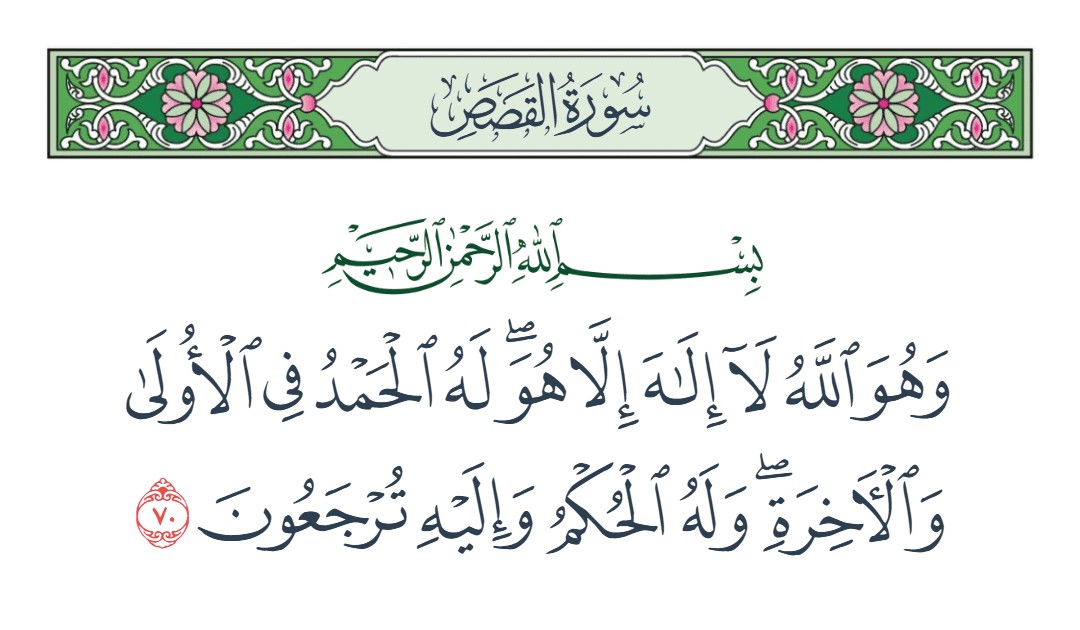 سُورَةُ القَصَصِ
بِسْمِ ٱللَّهِ ٱلرَّحْمَٰنِ ٱلرَّحِيمِ
وَهُوَ ٱللَّهُ لَآ إِلَٰهَ إِلَّا هُوَۖ لَهُ ٱلْحَمْدُ فِى ٱلْأُولَىٰ
وَٱلْأَخِرَةِۖ وَلَهُ ٱلْحُكْمُ وَإِلَيْهِ تُرْجَعُونَ ٧٠